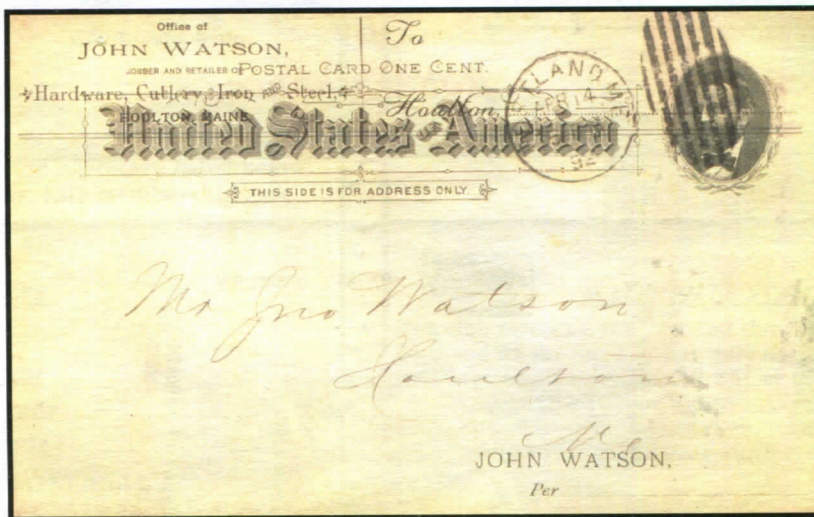 Office of
JOHN WATSON,
JOBBER AND RETAILER OF
Hardware, Cutlery, Iron AND Steel,
HOULTON, MAINE.
To
Houlton,
POSTAL CARD ONE CENT.
United States OF America
THIS SIDE IS FOR ADDRESS ONLY.
TLAND ME
FEB 14
92
Mr Jno Watson
Houlton
Me
JOHN WATSON,
Per